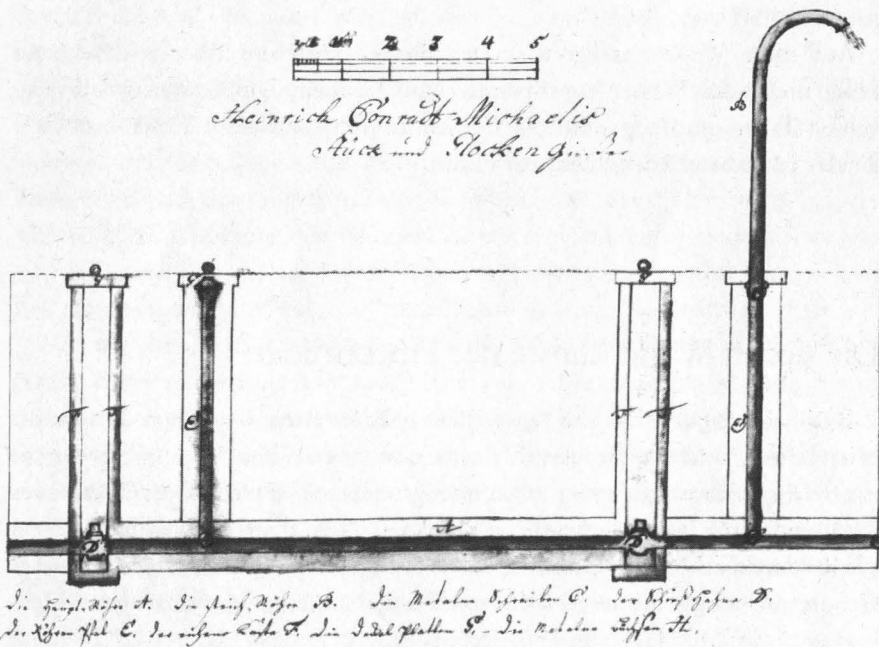 1 2 3 4 5
Heinrich Conradt Michaelis
Stück und Glocken Gießer
B
F F E F F E
A
D D
die Haupt Röhre A. die Steich Röhre B. die Metalen Schrauben C. der Schließ hahn D.
der Röhren Pfal E. der eichene Kaste F. die Deckel Platte G. die Metalen Büchsen H.